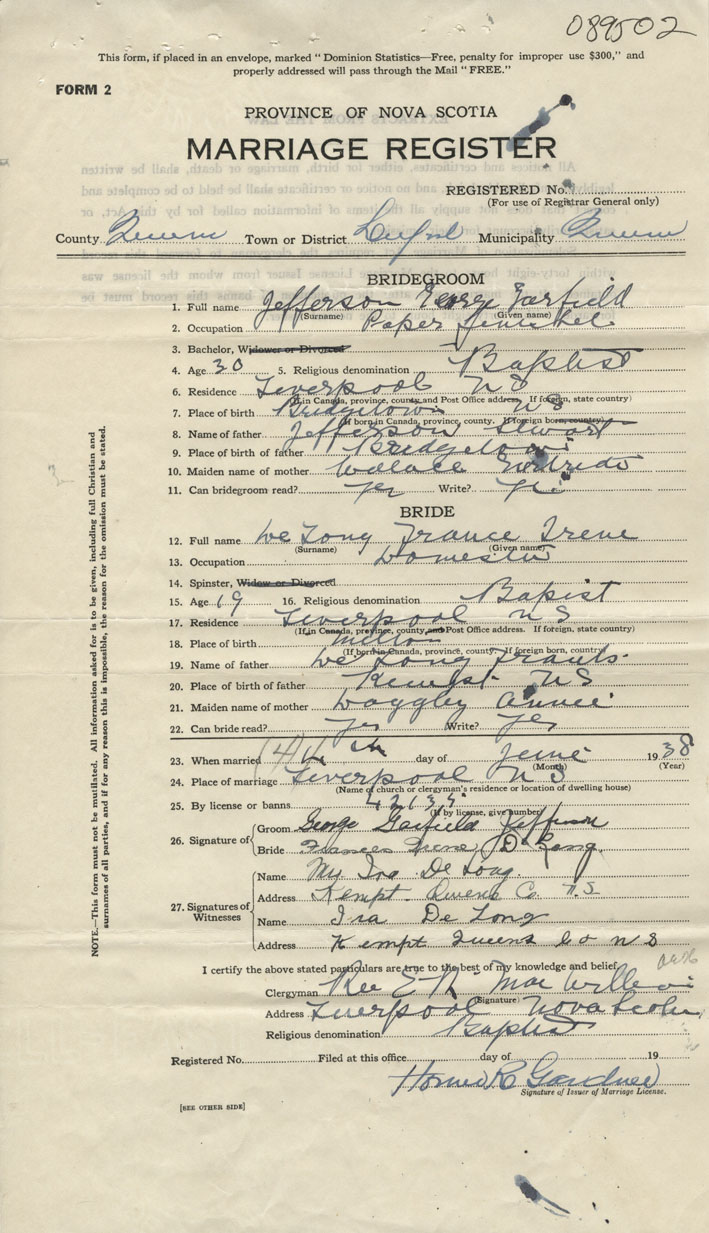 089502
This form, if placed in an envelope, marked "Dominion Statistics—Free, penalty for improper use $300," and
properly addressed will pass through the Mail "FREE."
FORM 2
PROVINCE OF NOVA SCOTIA
MARRIAGE REGISTER
REGISTERED No.
(For use of Registrar General only)
County Queens Town or District Municipality Queens
BRIDEGROOM
1. Full name Jefferson George Garfield
(Surname) (Given name)
2. Occupation Paper
3. Bachelor, Widower or Divorced
4. Age 30 5. Religious denomination Baptist
6. Residence Liverpool N S
(If in Canada, province, county and Post Office address. If foreign, state country)
7. Place of birth Bridgetown N S
(If born in Canada, province, county. If foreign born, country)
8. Name of father Jefferson Stewart
9. Place of father Bridgetown
10. Maiden name of mother Wallace
11. Can bridegroom read? yes Write? yes
BRIDE
12. Full name De Long France Irene
(Surname) (Given name)
13. Occupation Domestic
14. Spinster, Widow or Divorced
15. Age 19 16. Religious denomination Bapist
17. Residence Liverpool N S
(If in Canada, province, county and Post Office address. If foreign, state country)
18. Place of birth Milton
(If born in Canada, province, county. If foreign born, country)
19. Name of father De Long
20. Place of birth of father Kempt N S
21. Maiden name of mother Annie
22. Can bride read? yes Write? yes
23. When married (4) 4 th day of June 1938
(Month) (Year)
24. Place of marriage Liverpool N S
(Name of church or clergyman's residence or location of dwelling house)
25. By license or banns 42135
(If by license, give number)
26. Signature of Groom George Garfield Jefferson
Bride Frances Irene D Long
27. Signatures of Witnesses Name Ira De Long
Address Kempt Queens Co N.S.
Name Ira De Long
Address Kempt Queens Co N S
I certify the above stated particulars are true to the best of my knowledge and belief
Clergyman Rev
(Signature)
Address Liverpool Nova Scotia
Religious denomination Baptist
Registered No. Filed at this office day of 19
Homer R Gardner
Signature of Issuer of Marriage License.
[SEE OTHER SIDE]
NOTE.—This form must not be mutilated. All information asked for is to be given, including full Christian and
surnames of all parties, and if for any reason this is impossible, the reason for the omission must be stated.